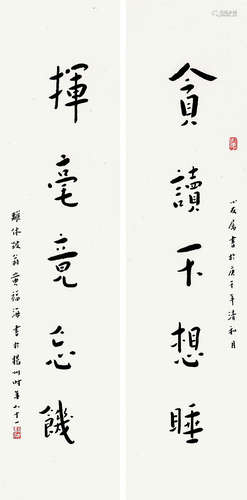 小友屬書於庚子年清和月
貪讀不想睡
揮毫竟忘饑
離休翁黄福海書於揚州時年八十一